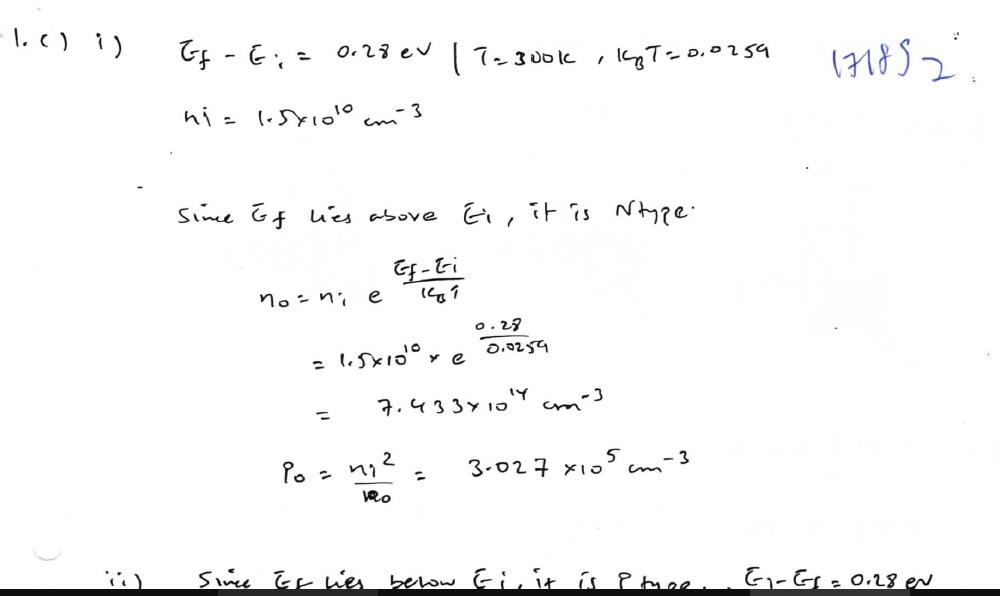 1. c) i) Ef - Ei = 0.28 eV | T = 300K , KBT = 0.0259
1718S2
ni = 1.5×10^10 cm^-3
Since Ef lies above Ei, it is N type.
n0 = ni e^(Ef-Ei / KBT)
= 1.5×10^10 × e^(0.28 / 0.0259)
= 7.433×10^14 cm^-3
P0 = ni^2 / n0 = 3.027 ×10^5 cm^-3
ii) Since Ef lies below Ei, it is P type. Ei-Ef = 0.28 eV